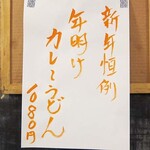 新年恒例
年明け
カレーうどん
1080円